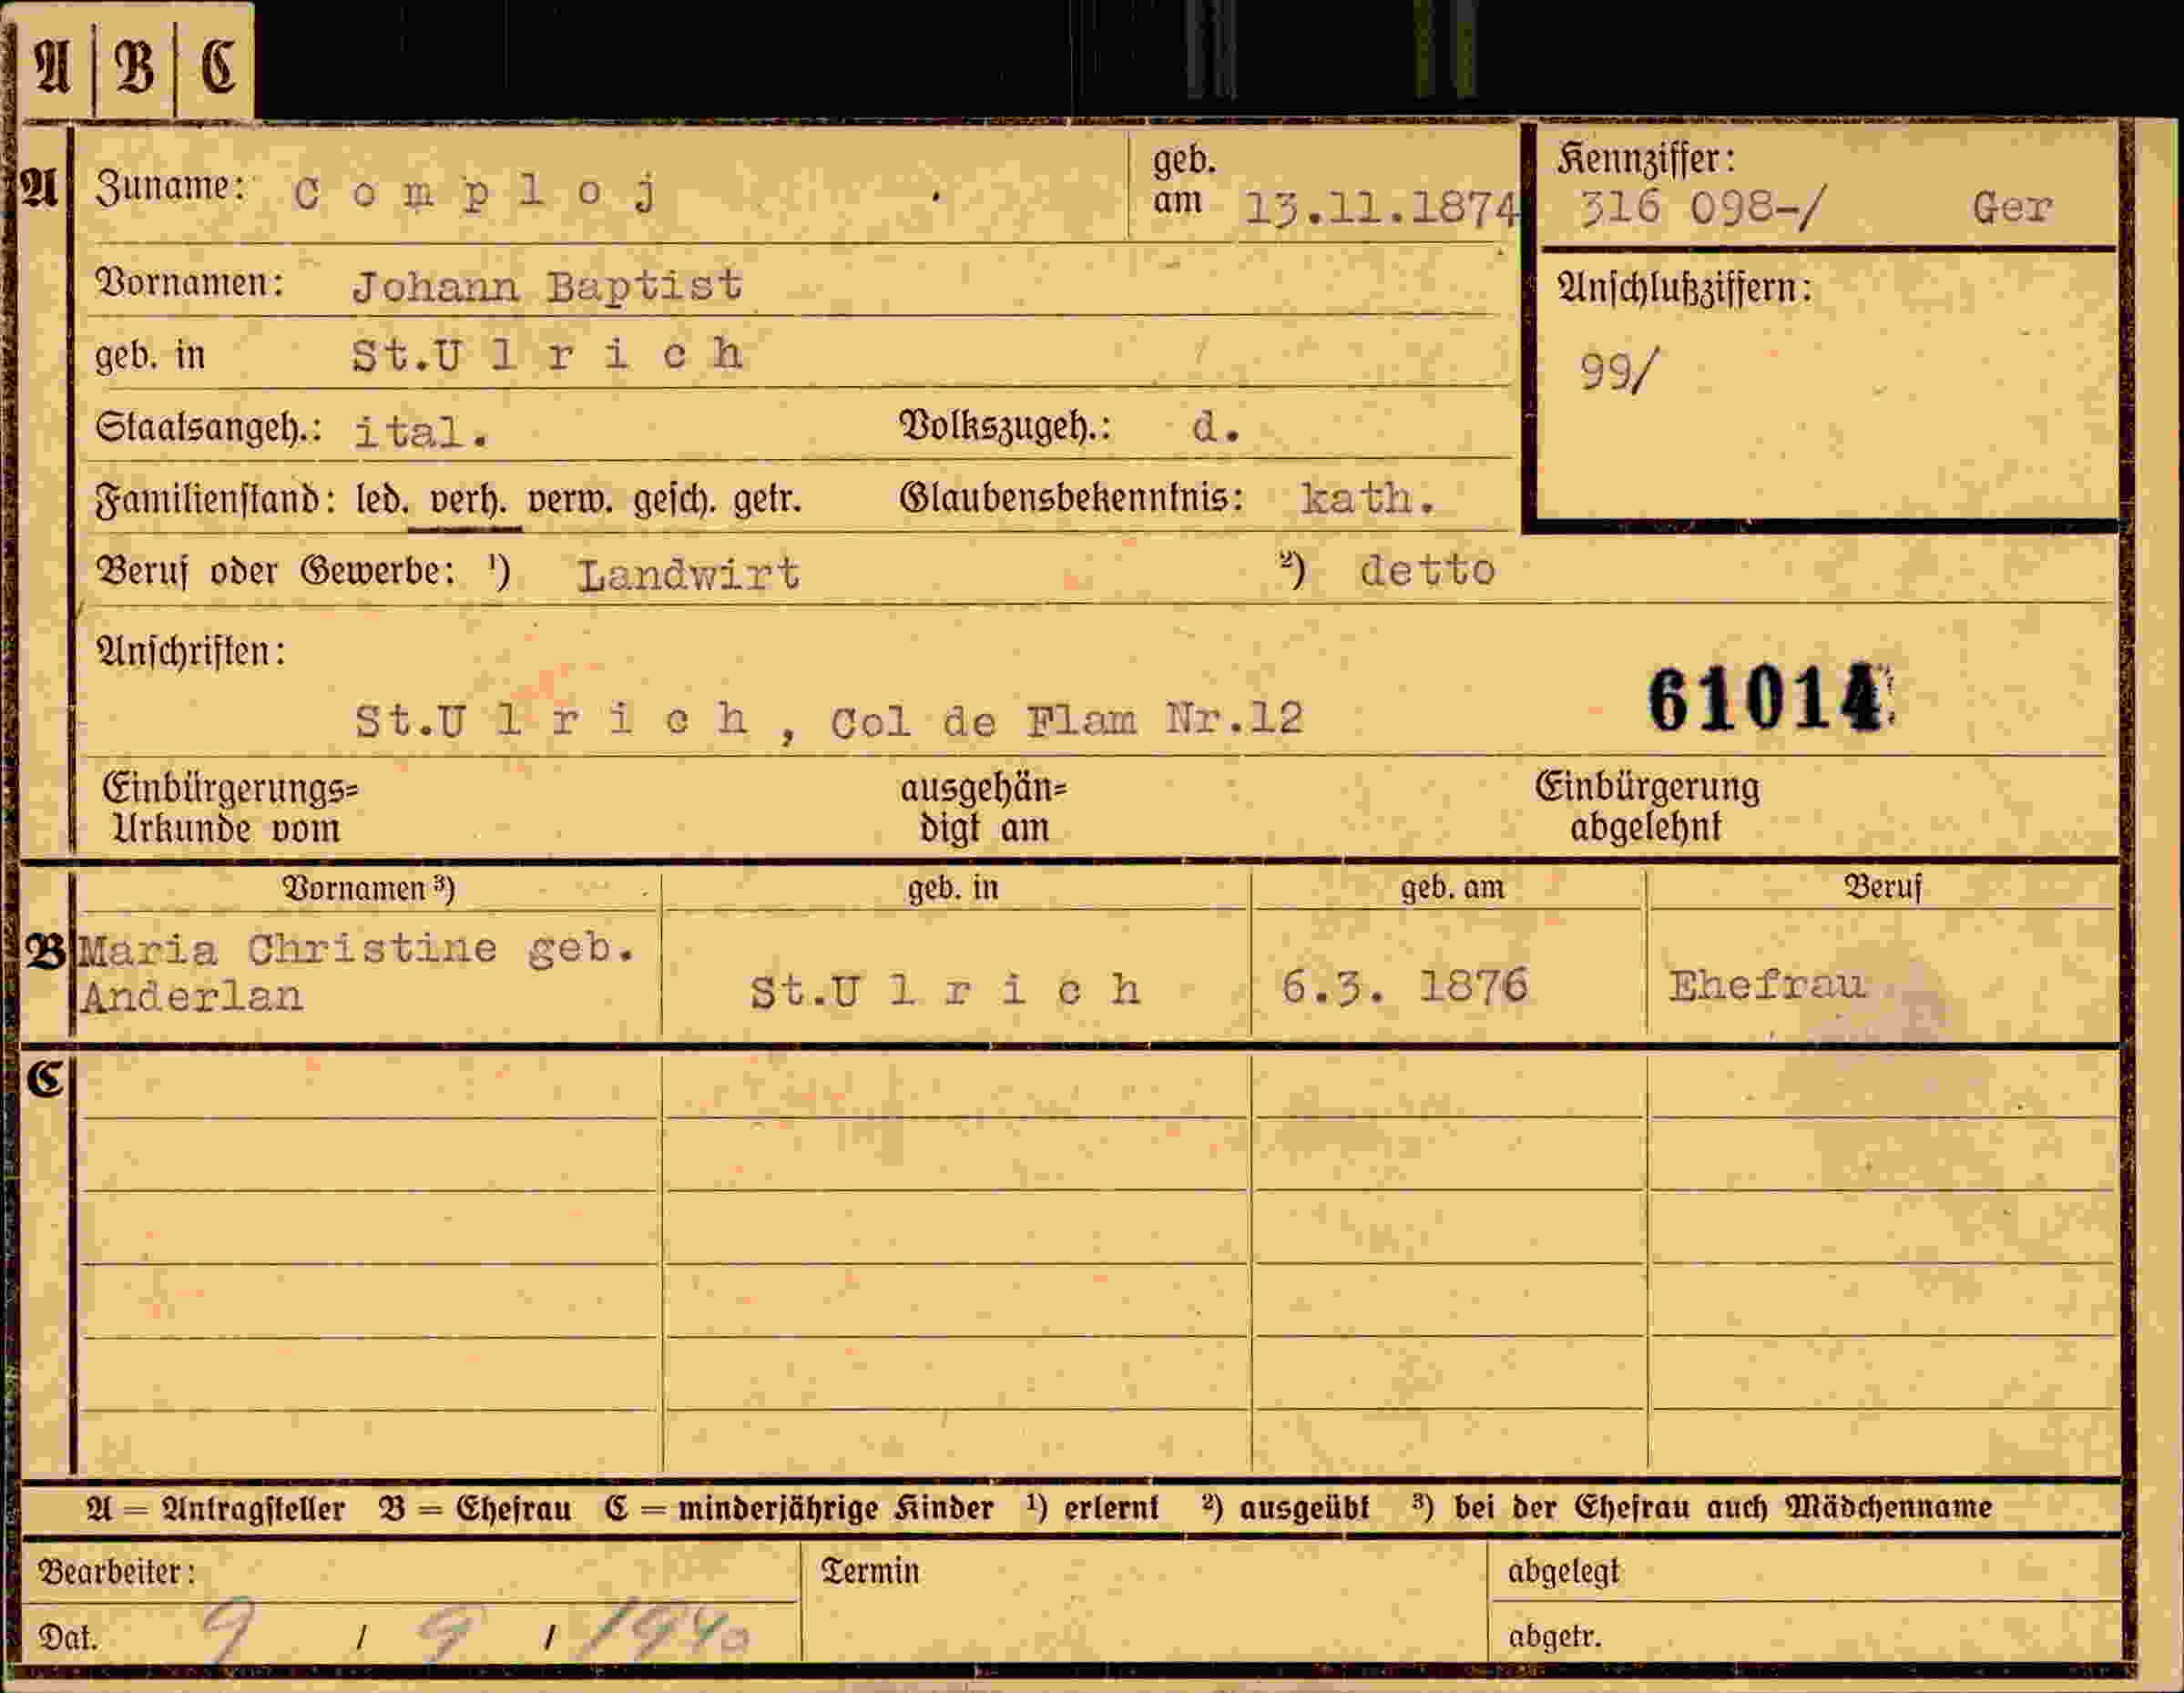 A | B | C
A Zuname: C o m p l o j geb. am 13.11.1874
Kennziffer:
316 098-/ Ger
Vornamen: Johann Baptist
Anschlußziffern:
99/
geb. in St.U l r i c h
Staatsangeh.: ital. Volkszugeh.: d.
Familienstand: led. verh. verw. gesch. getr. Glaubensbekenntnis: kath.
Beruf oder Gewerbe: ¹) Landwirt ²) detto
Anschriften:
St.U l r i c h , Col de Flam Nr.12
61014
Einbürgerungs= ausgehän= Einbürgerung
Urkunde vom digt am abgelehnt
Vornamen ³) geb. in geb. am Beruf
B Maria Christine geb.
Anderlan St.U l r i c h 6.3. 1876 Ehefrau
C
A = Antragsteller B = Ehefrau C = minderjährige Kinder ¹) erlernt ²) ausgeübt ³) bei der Ehefrau auch Mädchenname
Bearbeiter: Termin abgelegt
Dat. 9 / 9 / 1940 abgetr.